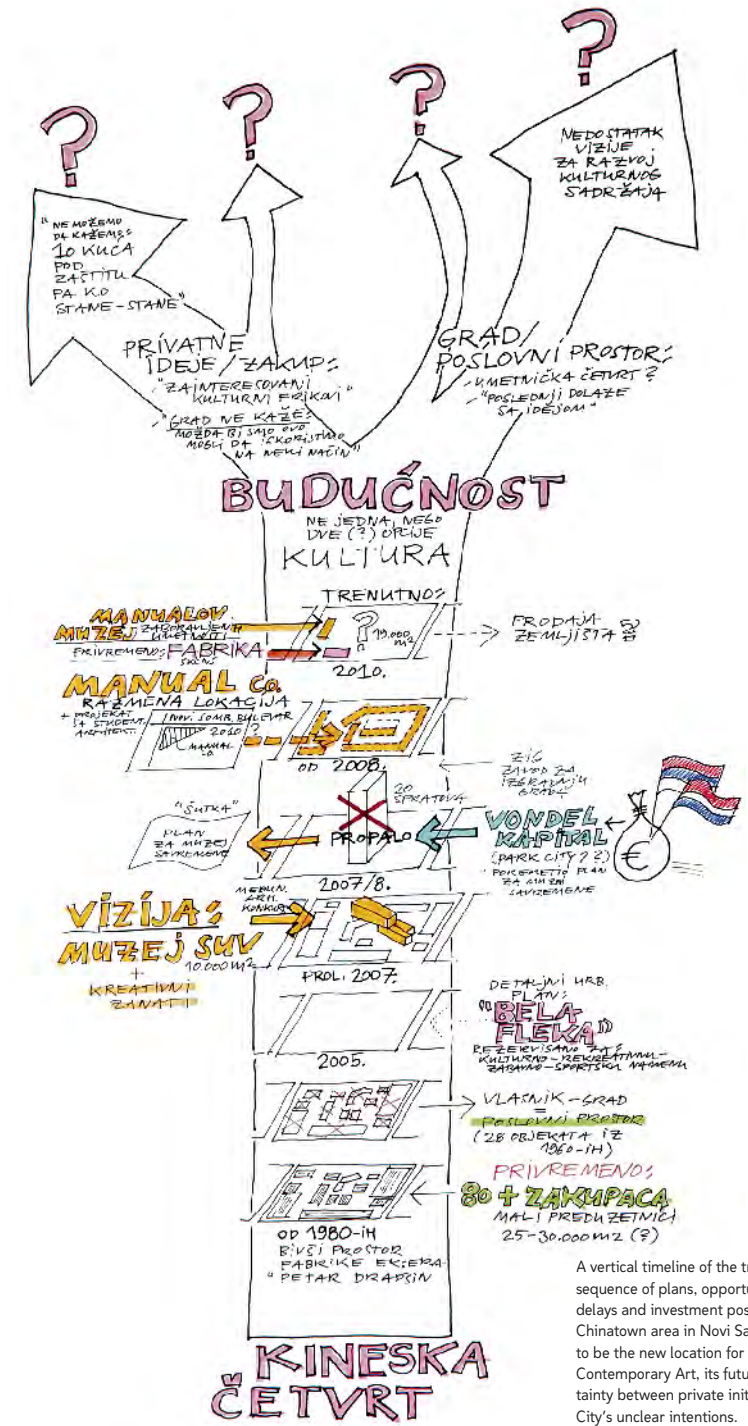 ?
?
?
?
"NE MOŽEMO
DA KAŽEMO:
10 KUĆA
POD
ZAŠTITU
PA KO
STANE-STANE"
NEDOSTATAK
VIZIJE
ZA RAZVOJ
KULTURNOG
SADRŽAJA
PRIVATNE
IDEJE/ZAKUP:
"ZAINTERESOVANI
KULTURNI
"GRAD NE KAŽE:
MOŽDA BI SMO OVO
MOGLI DA ISKORISTIMO
NA NEKI NAČIN"
GRAD/
POSLOVNI PROSTOR:
UMETNIČKA ČETVRT?
"POSLEDNJI DOLAZE
SA IDEJOM"
BUDUĆNOST
NE JEDNA, NEGO
DVE (?) OPCIJE
KULTURA
TRENUTNO:
MANUALOV
MUZEJ ZABORAVLJENE
UMETNOSTI
PRIVREMENO: FABRIKA
?
19.000
m2
2010.
PRODAJA
ZEMLJIŠTA
MANUAL CO.
RAZMENA LOKACIJA
+ PROJEKAT
SA STUDENT.
ARHITEKT.
1 NOVI SOMB. BULEVAR
2010
?
MANUAL
CO.
OD 2008.
ZIG
ZAVOD ZA
IZGRADNJU
GRADA
20
SPRATOVA
"ŠUTKA"
PLAN
ZA MUZEJ
SAVREMENE
PROPALO
VONDEL
KAPITAL
(PARK CITY??)
POREMETIO PLAN
ZA MUZEJ
SAVREMENE
€
2007/8.
MEĐUN.
ARH.
KONKURS
VIZIJA:
MUZEJ SUV
10.000m2
+
KREATIVNI
ZANATI
PROL. 2007.
DETALJNI URB.
PLAN:
"BELA
FLEKA"
REZERVISANO ZA:
KULTURNO-REKREATIVNU-
ZABAVNO-SPORTSKU NAMENU
2005.
VLASNIK-GRAD
=
POSLOVNI PROSTOR
(28 OBJEKATA IZ
1960-IH)
PRIVREMENO:
80+ ZAKUPACA
MALI PREDUZETNICI
25-30.000m2 (?)
OD 1980-IH
BIVŠI PROSTOR
FABRIKE EKSERA
"PETAR DRAPŠIN
KINESKA
ČETVRT
A vertical timeline of the tr
sequence of plans, opportu
delays and investment pos
Chinatown area in Novi Sa
to be the new location for
Contemporary Art, its futu
tainty between private init
City's unclear intentions.